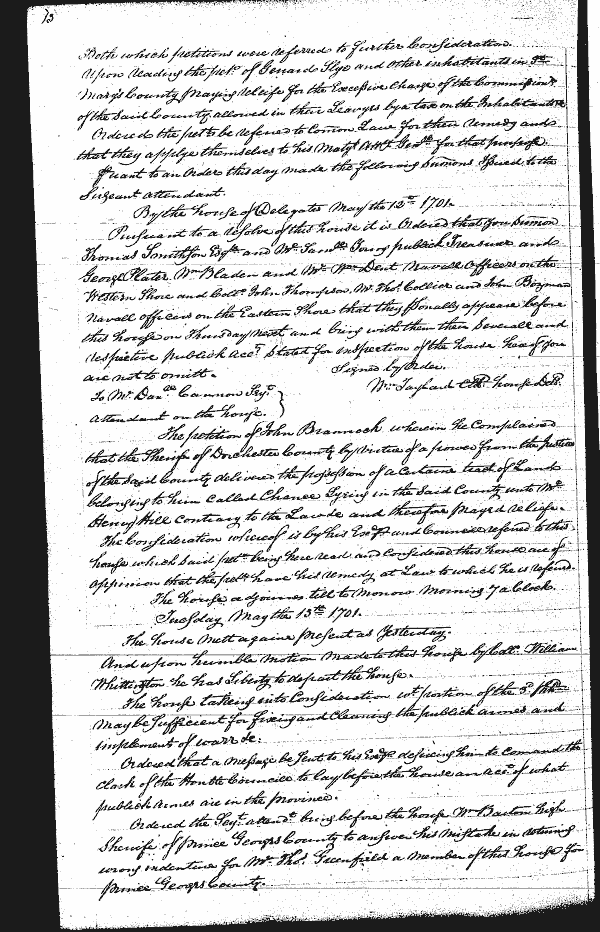 Both which petitions were referred to further Consideration.
Upon reading the petn. of Gerrard Slye and other inhabitants in St.
Marys County praying releife for the Excessive Charge of the Commissionrs.
of the Said County allowed in their Leavyes by a tax on the Inhabitants
Ordered the petrs be referred to Comon Law for their remedy and
that they applye themselves to his Matys Atto. Genll. for that purpose.
Psuant to an Order this day made the following Sumons Issued to the
Serjeant attendant.
By the house of Delegates May the 12th 1701.
Pursuant to a resolve of this house it is Ordered that you Sumon
Thomas Smithson Esqr. and Mr. Saml. Young publick Treasurers and
George Plater Wm Bladen and Mr. Wm Dent Navall Officers on the
Western Shore and Coll. John Thompson, Mr. Tho. Collier and John Bozman
Navall officers on the Eastern Shore that they psonally appeare before
this house on Thursday next and bring with them their Severall and
respective publick acct. Stated for inspection of the house hereof you
are not to omitt.
Signed by Order.
Wm Taylard Clk. house Del.
To Mr. Danll. Cannon Sejt.
Attendant on the house.
The petition of John Brannock wherein he Complained
that the Sherife of Dorchester County by virtue of a power from the Justices
of the Said County delivered the possession of a Certaine tract of Land
belonging to him Called Chance Lyeing in the Said County unto Mr.
Henry Hill contrary to the Law &c and therefore prayed releife.
The Consideration whereof is by his Exncy and Councill referred to this
house which said petn. being here read and Considered this house are of
oppinion that the petr. have his remedy at Law to which he is referred.
The house adjourns till to Morrow Morning 7 a Clock.
Tuesday May the 13th 1701.
The house mett againe present as Yesterday.
And upon humble motion made to this house by Coll. William
Whittington he has Liberty to depart the house.
The house takeing into Consideration wt portion of the 3d.
may be Sufficient for fixing and Cleaning the publick armes and
implement of warr &c:
Ordered that a Message be Sent to his Exncy desireing him to Comand the
Clark of the Honble Councill to lay before the house an acct. of what
publick Armes are in the province.
Ordered the Sejt. attendt. bring before the house Wm Barton high
Sherife of Prince Georges County to answer his mistake in returning
wrong indenture for Mr. Tho. Greenfield a Member of this house for
Prince Georges County.